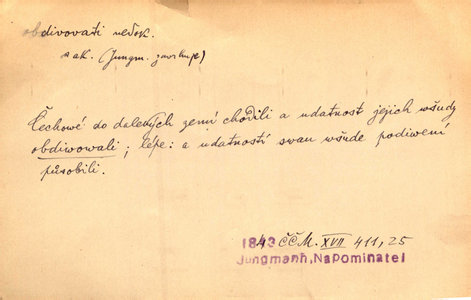 obdivovati nedok.
* ak. (Jungm. zavrhuje)
Čechowé do dalekých zemí chodili a udatnost jejich wšudy
obdiwowali; lépe: a udatností swau wšude podiwení
působili.
1843 ČČM. XVII 411, 25
Jungmann, Napominatel